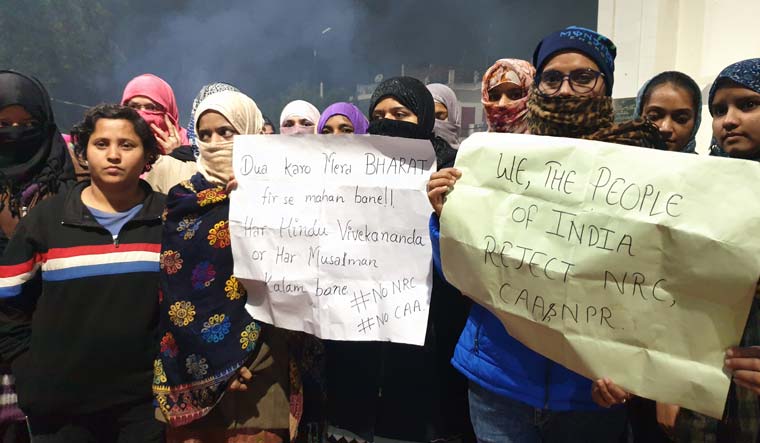 DUA KARO MERA BHARAT
fir se mahan bane!!
Har Hindu Vivekananda
or Har Musalman
Kalam bane.
#NO NRC
#NO CAA.
WE, THE PEOPLE
OF INDIA
REJECT NRC,
CAA & NPR.